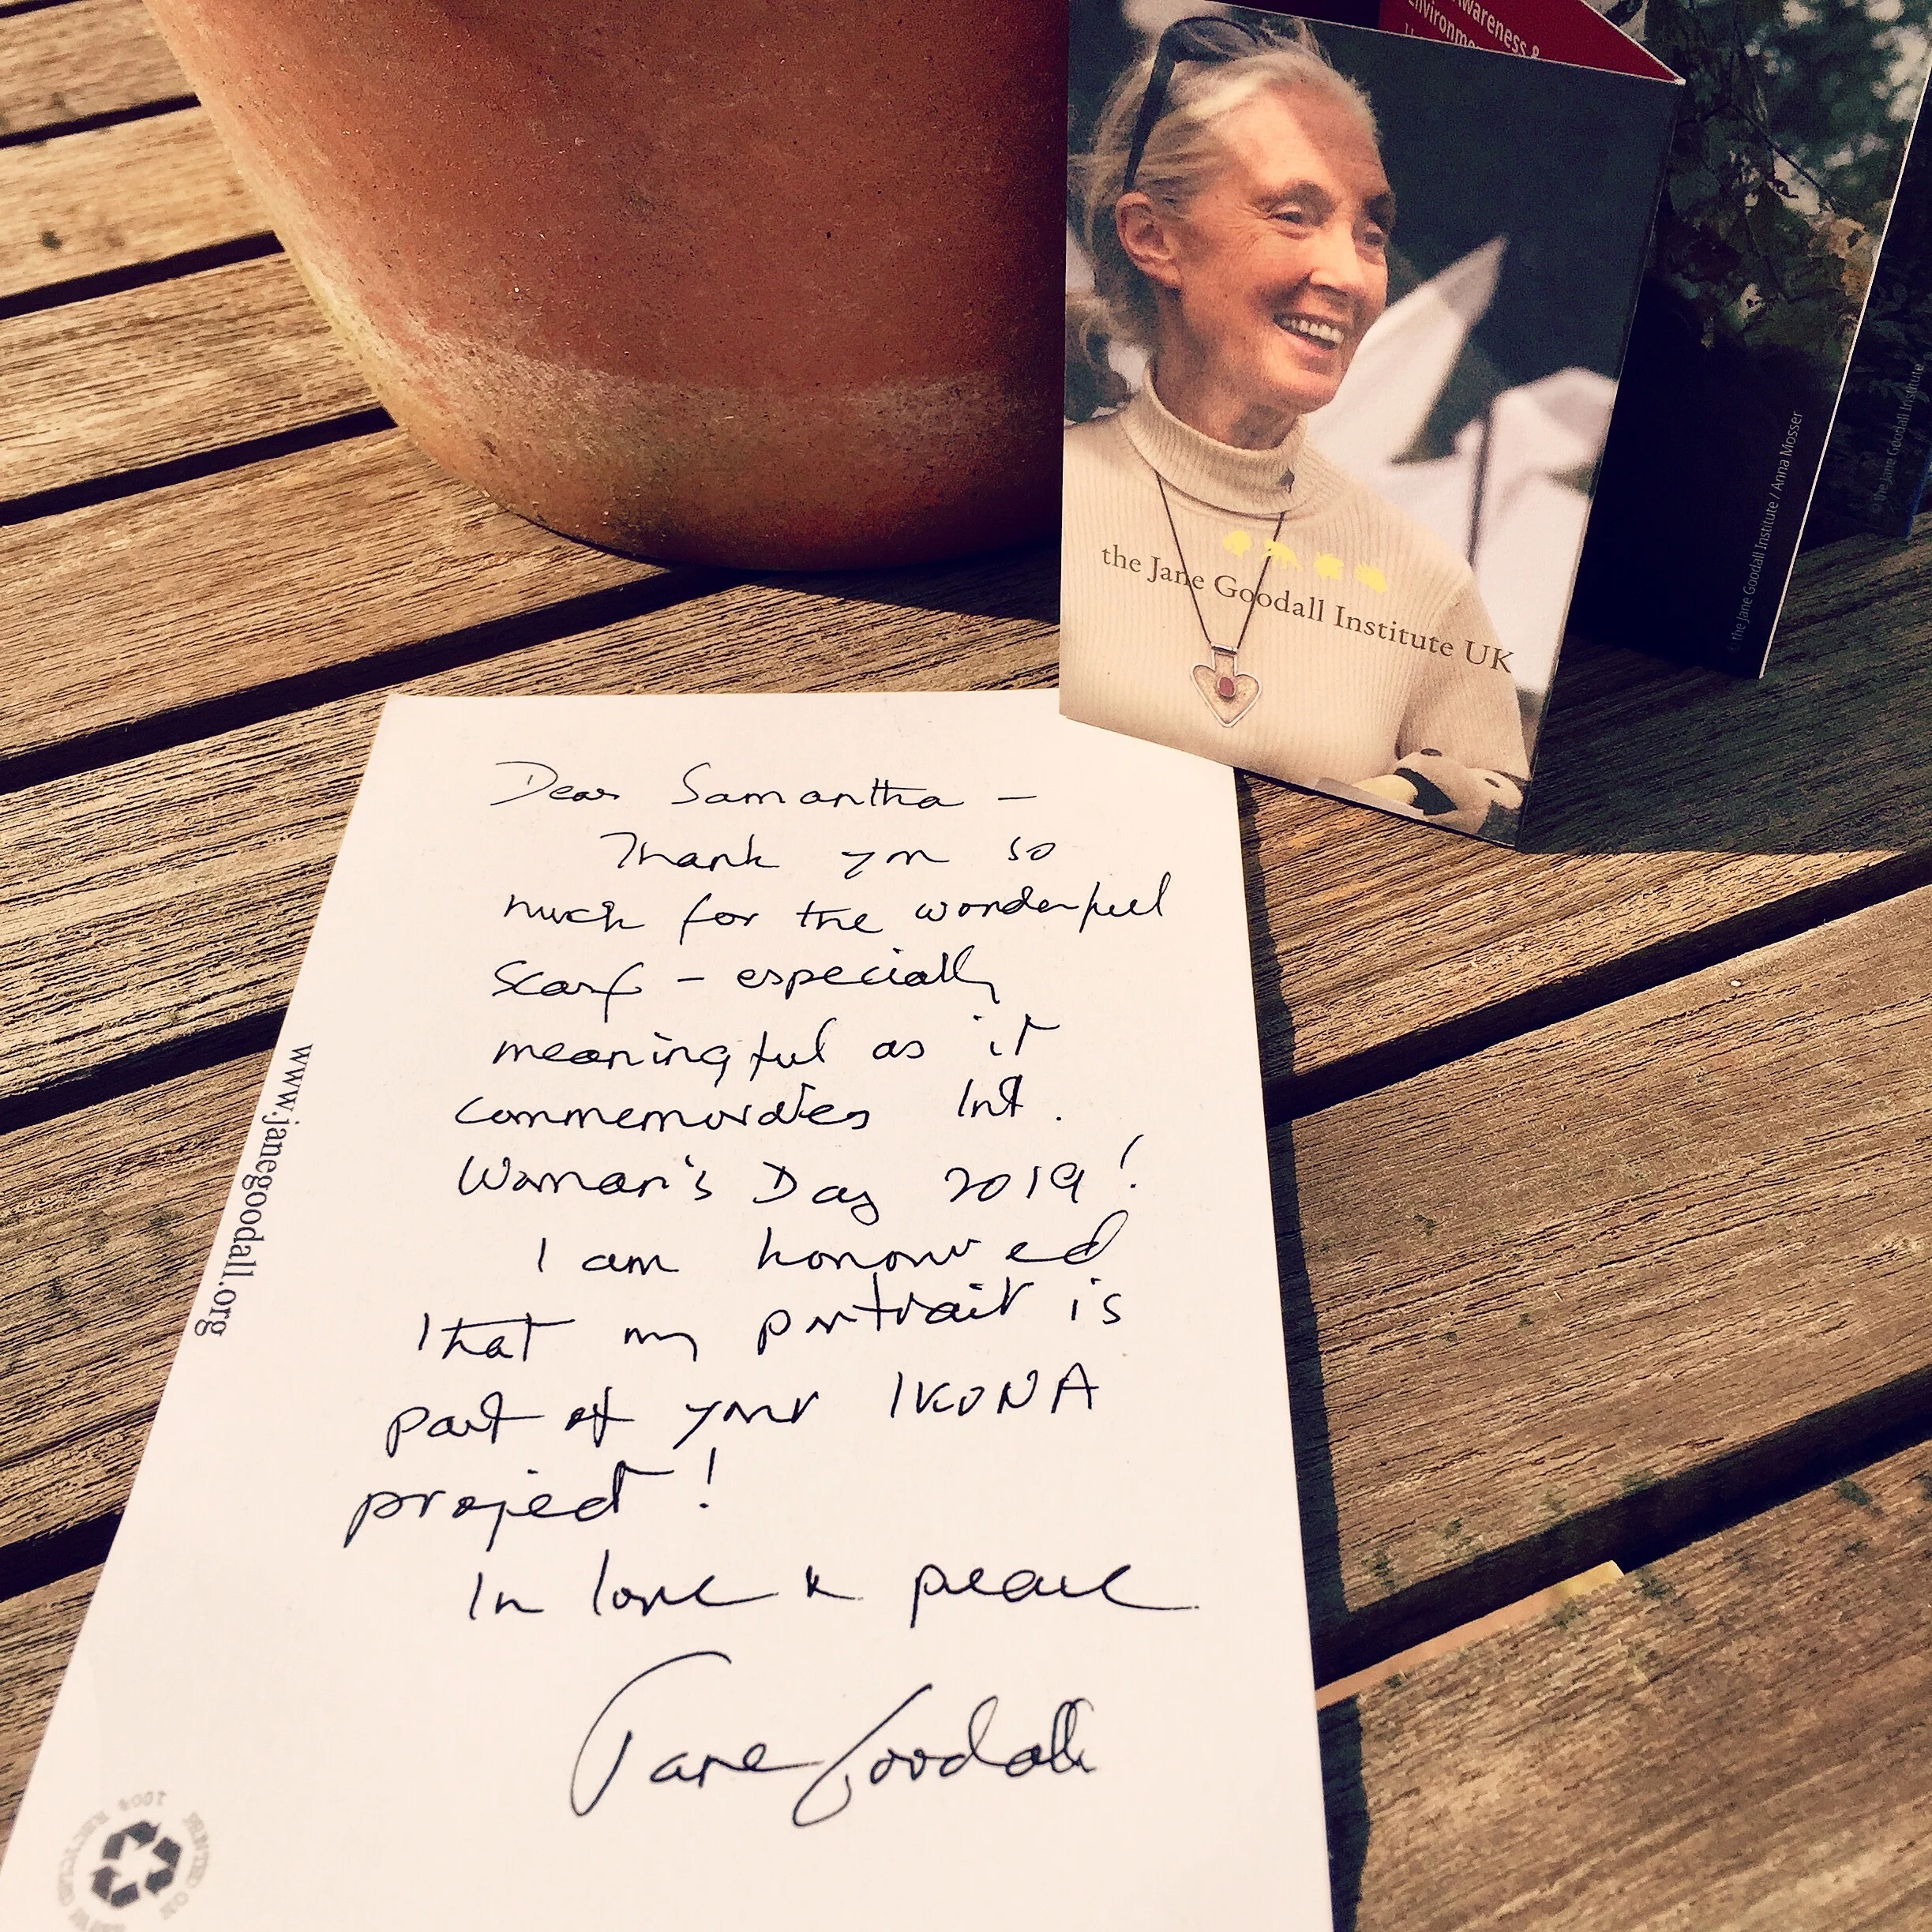 Awareness &
Environme
the Jane Goodall Institute UK
© the Jane Goodall Institute / Anna Mosser
© the Jane Goodall Institute
Dear Samantha –
Thank you so
much for the wonderful
scarf – especially
meaningful as it
commemorates Int.
Woman's Day 2019!
I am honoured
that my portrait is
part of your IKONA
project!
In love & peace
Jane Goodall
www.janegoodall.org
PRINTED ON
100% RECYCLED